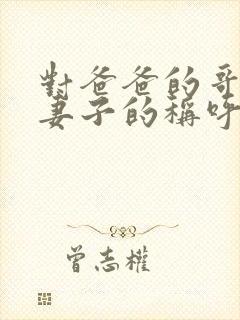 對爸爸的哥
妻子的稱呼
曾志權